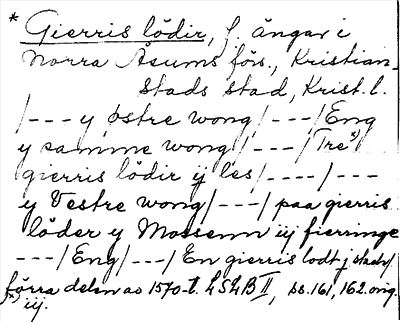 * Gierris lödir, f. ängar i
Norra Åsums förs., Kristian-
stads stad, Krist. l.
/--- y østre wong /---/ Eng
y samme wong /---/ Tre x)
gierris lödir ij les /----/---
y Vestre wong /---/ paa gierris
löder y Mossenn iij fierringe
---/ Eng /---/ En gierris lodt j
förra delen av 1570-t. LSLB II, ss. 161, 162. orig.
x) iij.